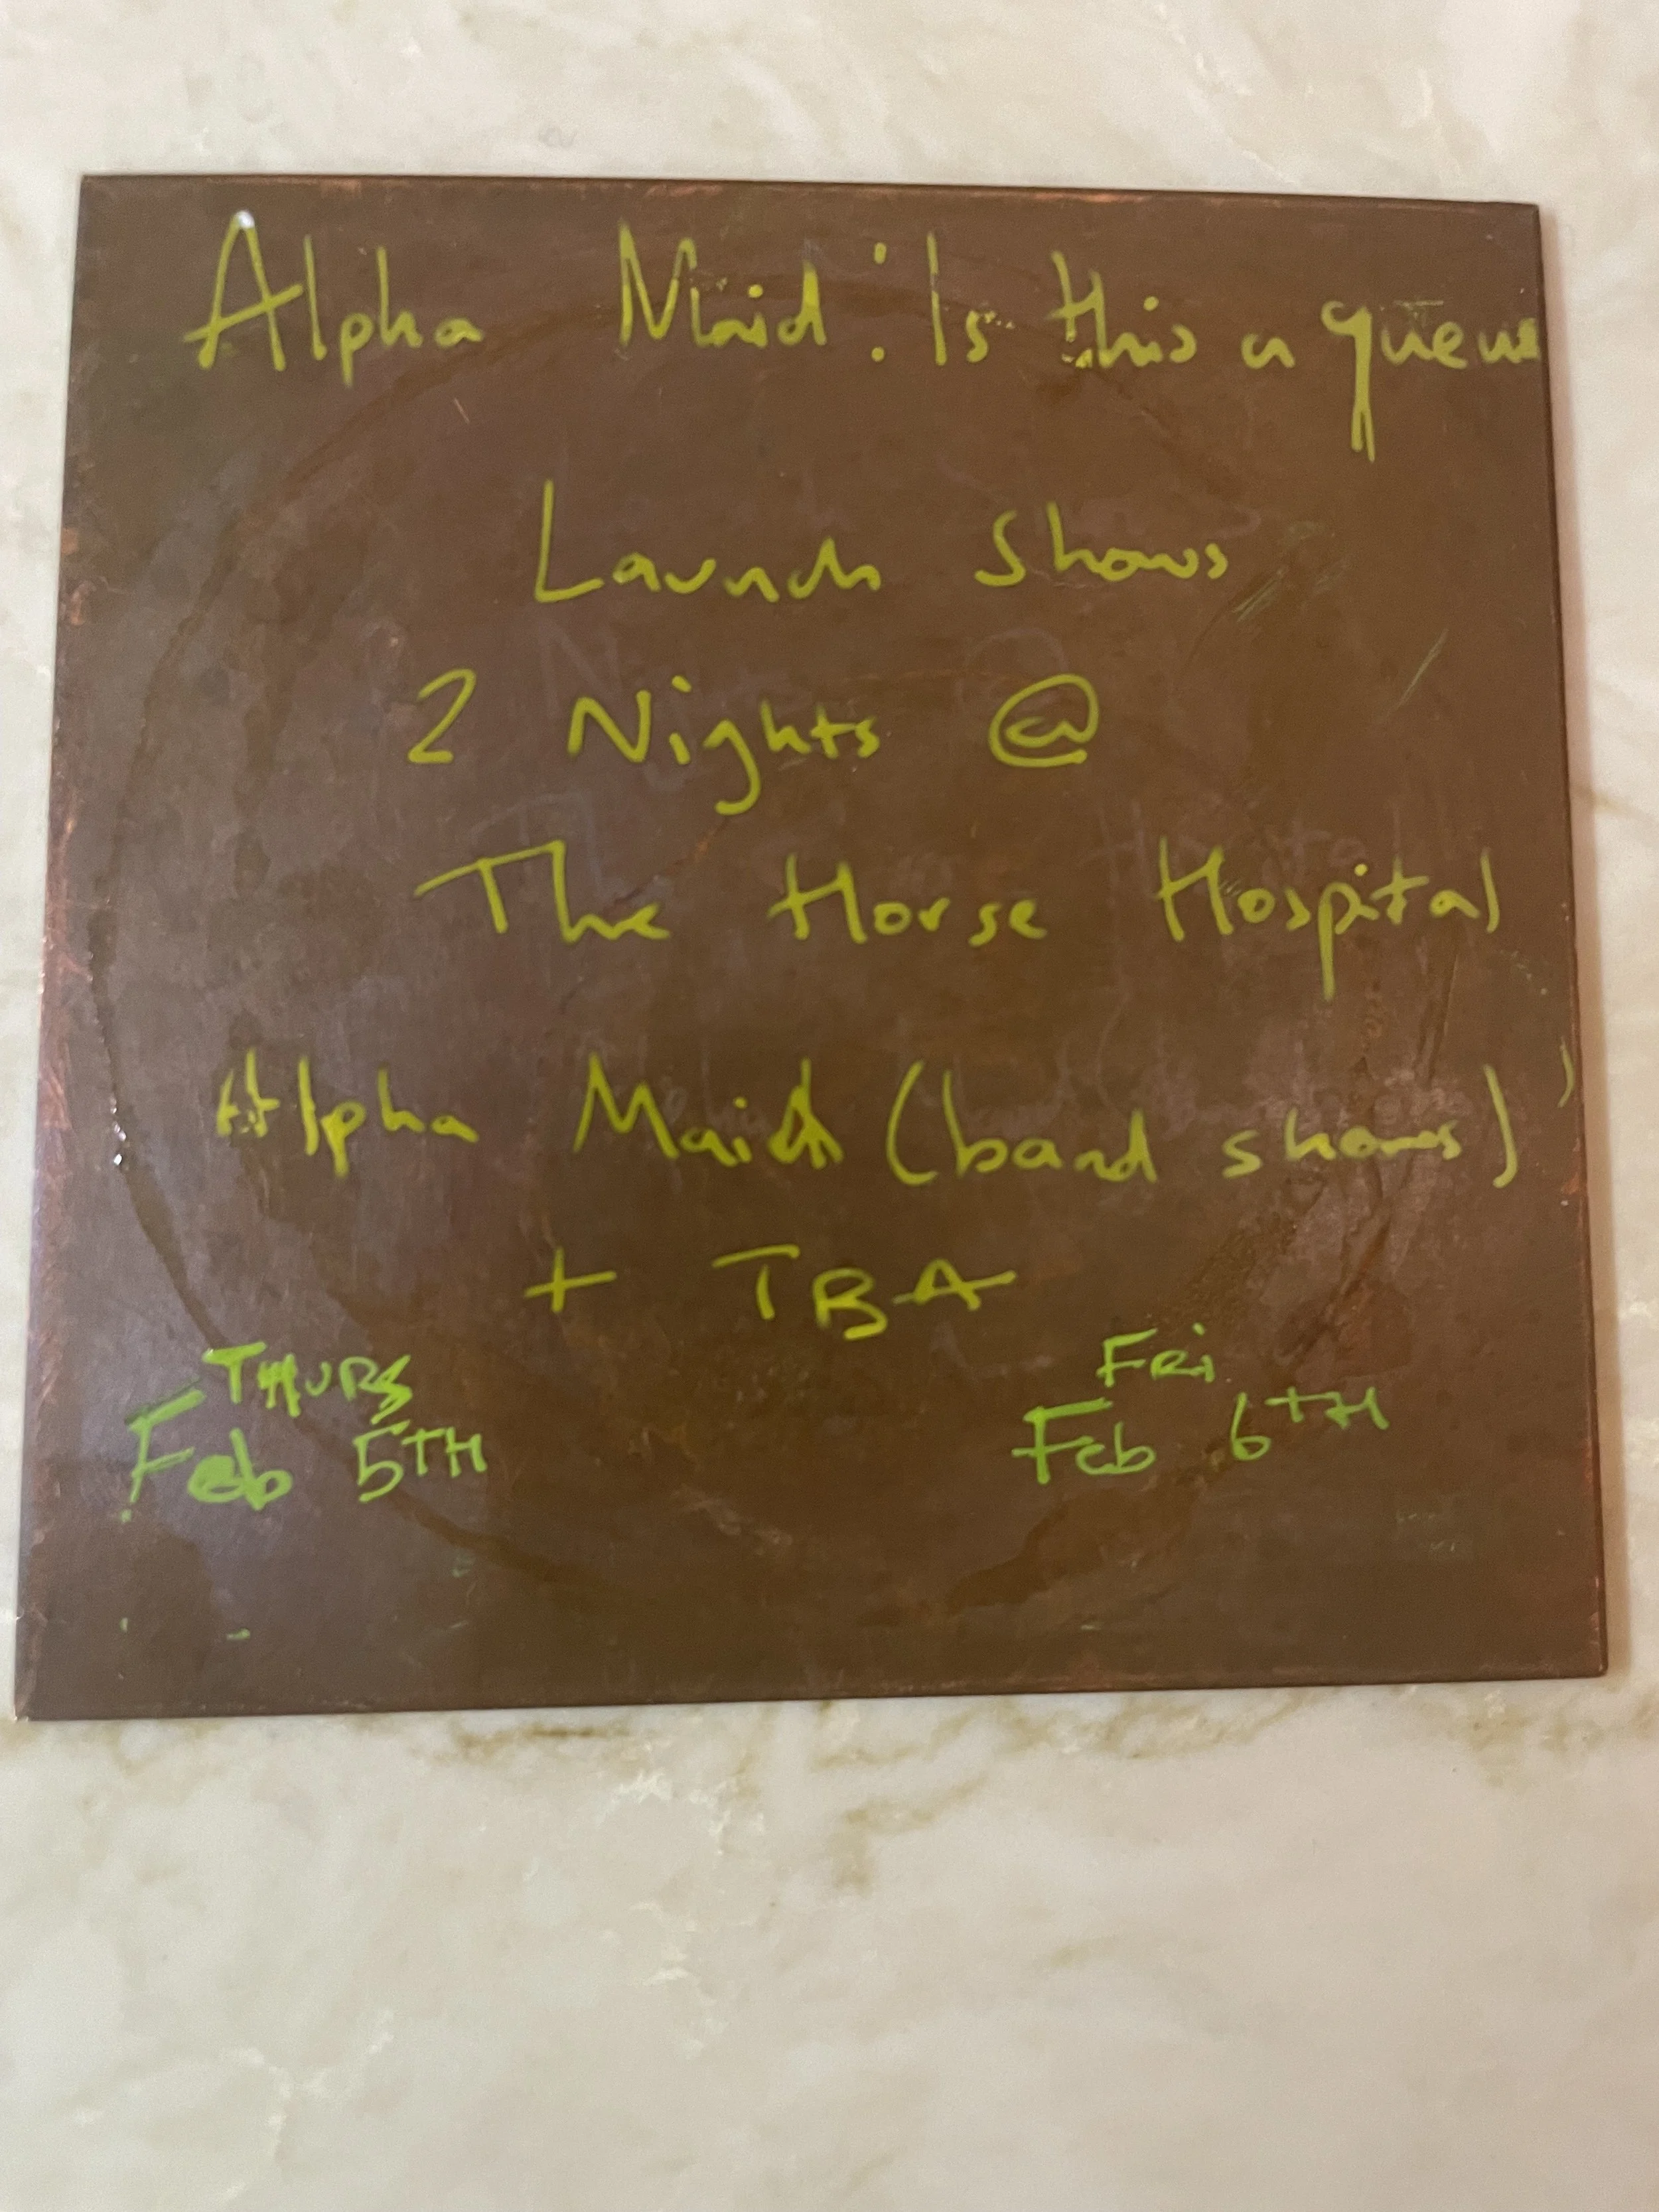 Alpha Maid : Is this a queue
Launch Shows
2 Nights @
The Horse Hospital
Alpha Maid (band shows)
+ TBA
THURS
Feb 5TH
FRi
Feb 6TH